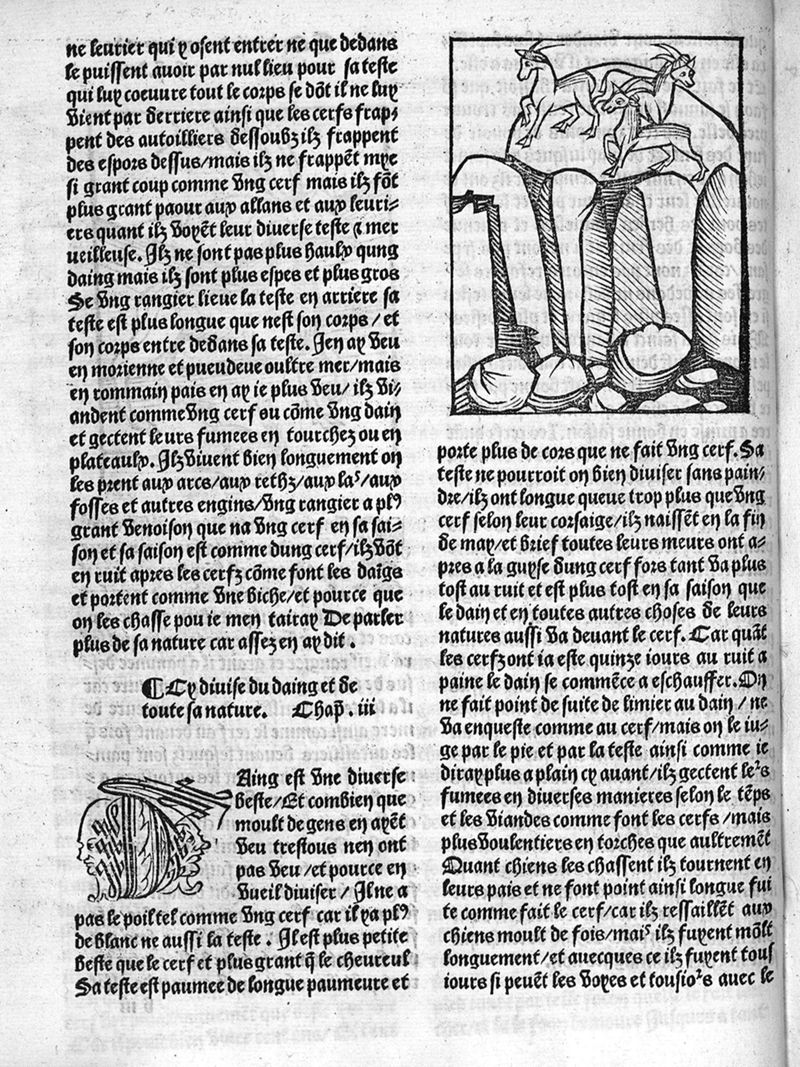 ne leurier qui y osent entrer ne que dedans
le puissent auoir par nul lieu pour sa teste
qui luy coeuure tout le corps se dōt il ne luy
vient par derriere ainsi que les cerfs frap-
pent des autoilliers dessoubz ilz frappent
des espors dessus/mais ilz ne frappēt mye
si grant coup comme vng cerf mais ilz fōt
plus grant paour aux allans et aux leuri-
ers quant ilz voyēt leur diuerse teste ⁊ mer
ueilleuse. Ilz ne sont pas plus haulx qung
daing mais ilz sont plus espes et plus gros
Se vng rangier lieue la teste en arriere sa
teste est plus longue que nest son corps / et
son corps entre dedans sa teste. Jen ay veu
en morienne et pueudeue oultre mer/mais
en rommain pais en ay ie plus veu/ ilz vi-
andent comme vng cerf ou cōme vng dain
et gectent leurs fumees en tourchez ou en
plateaulx. Ilz viuent bien longuement on
les prent aux arcs/aux rethz/aux laˢ/aux
fosses et autres engins/vng rangier a plꝰ
grant venoison que na vng cerf en sa sai-
son et sa saison est comme dung cerf/ilz vōt
en ruit apres les cerfz cōme font les daīgs
et portent comme vne biche/et pource que
on les chasse pou ie men tairay De parler
plus de sa nature car assez en ay dit .
¶ Cy diuise du daing et de
toute sa nature. Chap̄. iii
DAing est vne diuerse
beste/Et combien que
moult de gens en ayēt
veu trestous nen ont
pas veu /et pource en
vueil diuiser / Il ne a
pas le poil tel comme vng cerf car il ya plꝰ
de blanc ne aussi la teste . Il est plus petite
beste que le cerf et plus grant q̄ le cheureul
Sa teste est paumee de longue paumeure et
porte plus de cors que ne fait vng cerf. Sa
teste ne pourroit on bien diuiser sans pain-
dre/ilz ont longue queue trop plus que vng
cerf selon leur corsaige/ilz naissēt en la fin
de may/et brief toutes leurs meurs ont a-
pres a la guyse dung cerf fors tant va plus
tost au ruit et est plus tost en sa saison que
le dain et en toutes autres choses de leurs
natures aussi va deuant le cerf. Car quāt
les cerfz ont ia este quinze iours au ruit a
paine le dain se commēce a eschauffer. On
ne fait point de suite de limier au dain / ne
va enqueste comme au cerf/mais on le iu-
ge par le pie et par la teste ainsi comme ie
diray plus a plain cy auant/ilz gectent leᷣs
fumees en diuerses manieres selon le tēps
et les viandes comme font les cerfs /mais
plus voulentiers en torches que aultremēt
Quant chiens les chassent ilz tournent en
leurs pais et ne font point ainsi longue fui
te comme fait le cerf/car ilz ressaillēt aux
chiens moult de fois/maiˢ ilz fuyent mōlt
longuement/et auecques ce ilz fuyent tous
iours si peuēt les voyes et tousioᷣs auec le